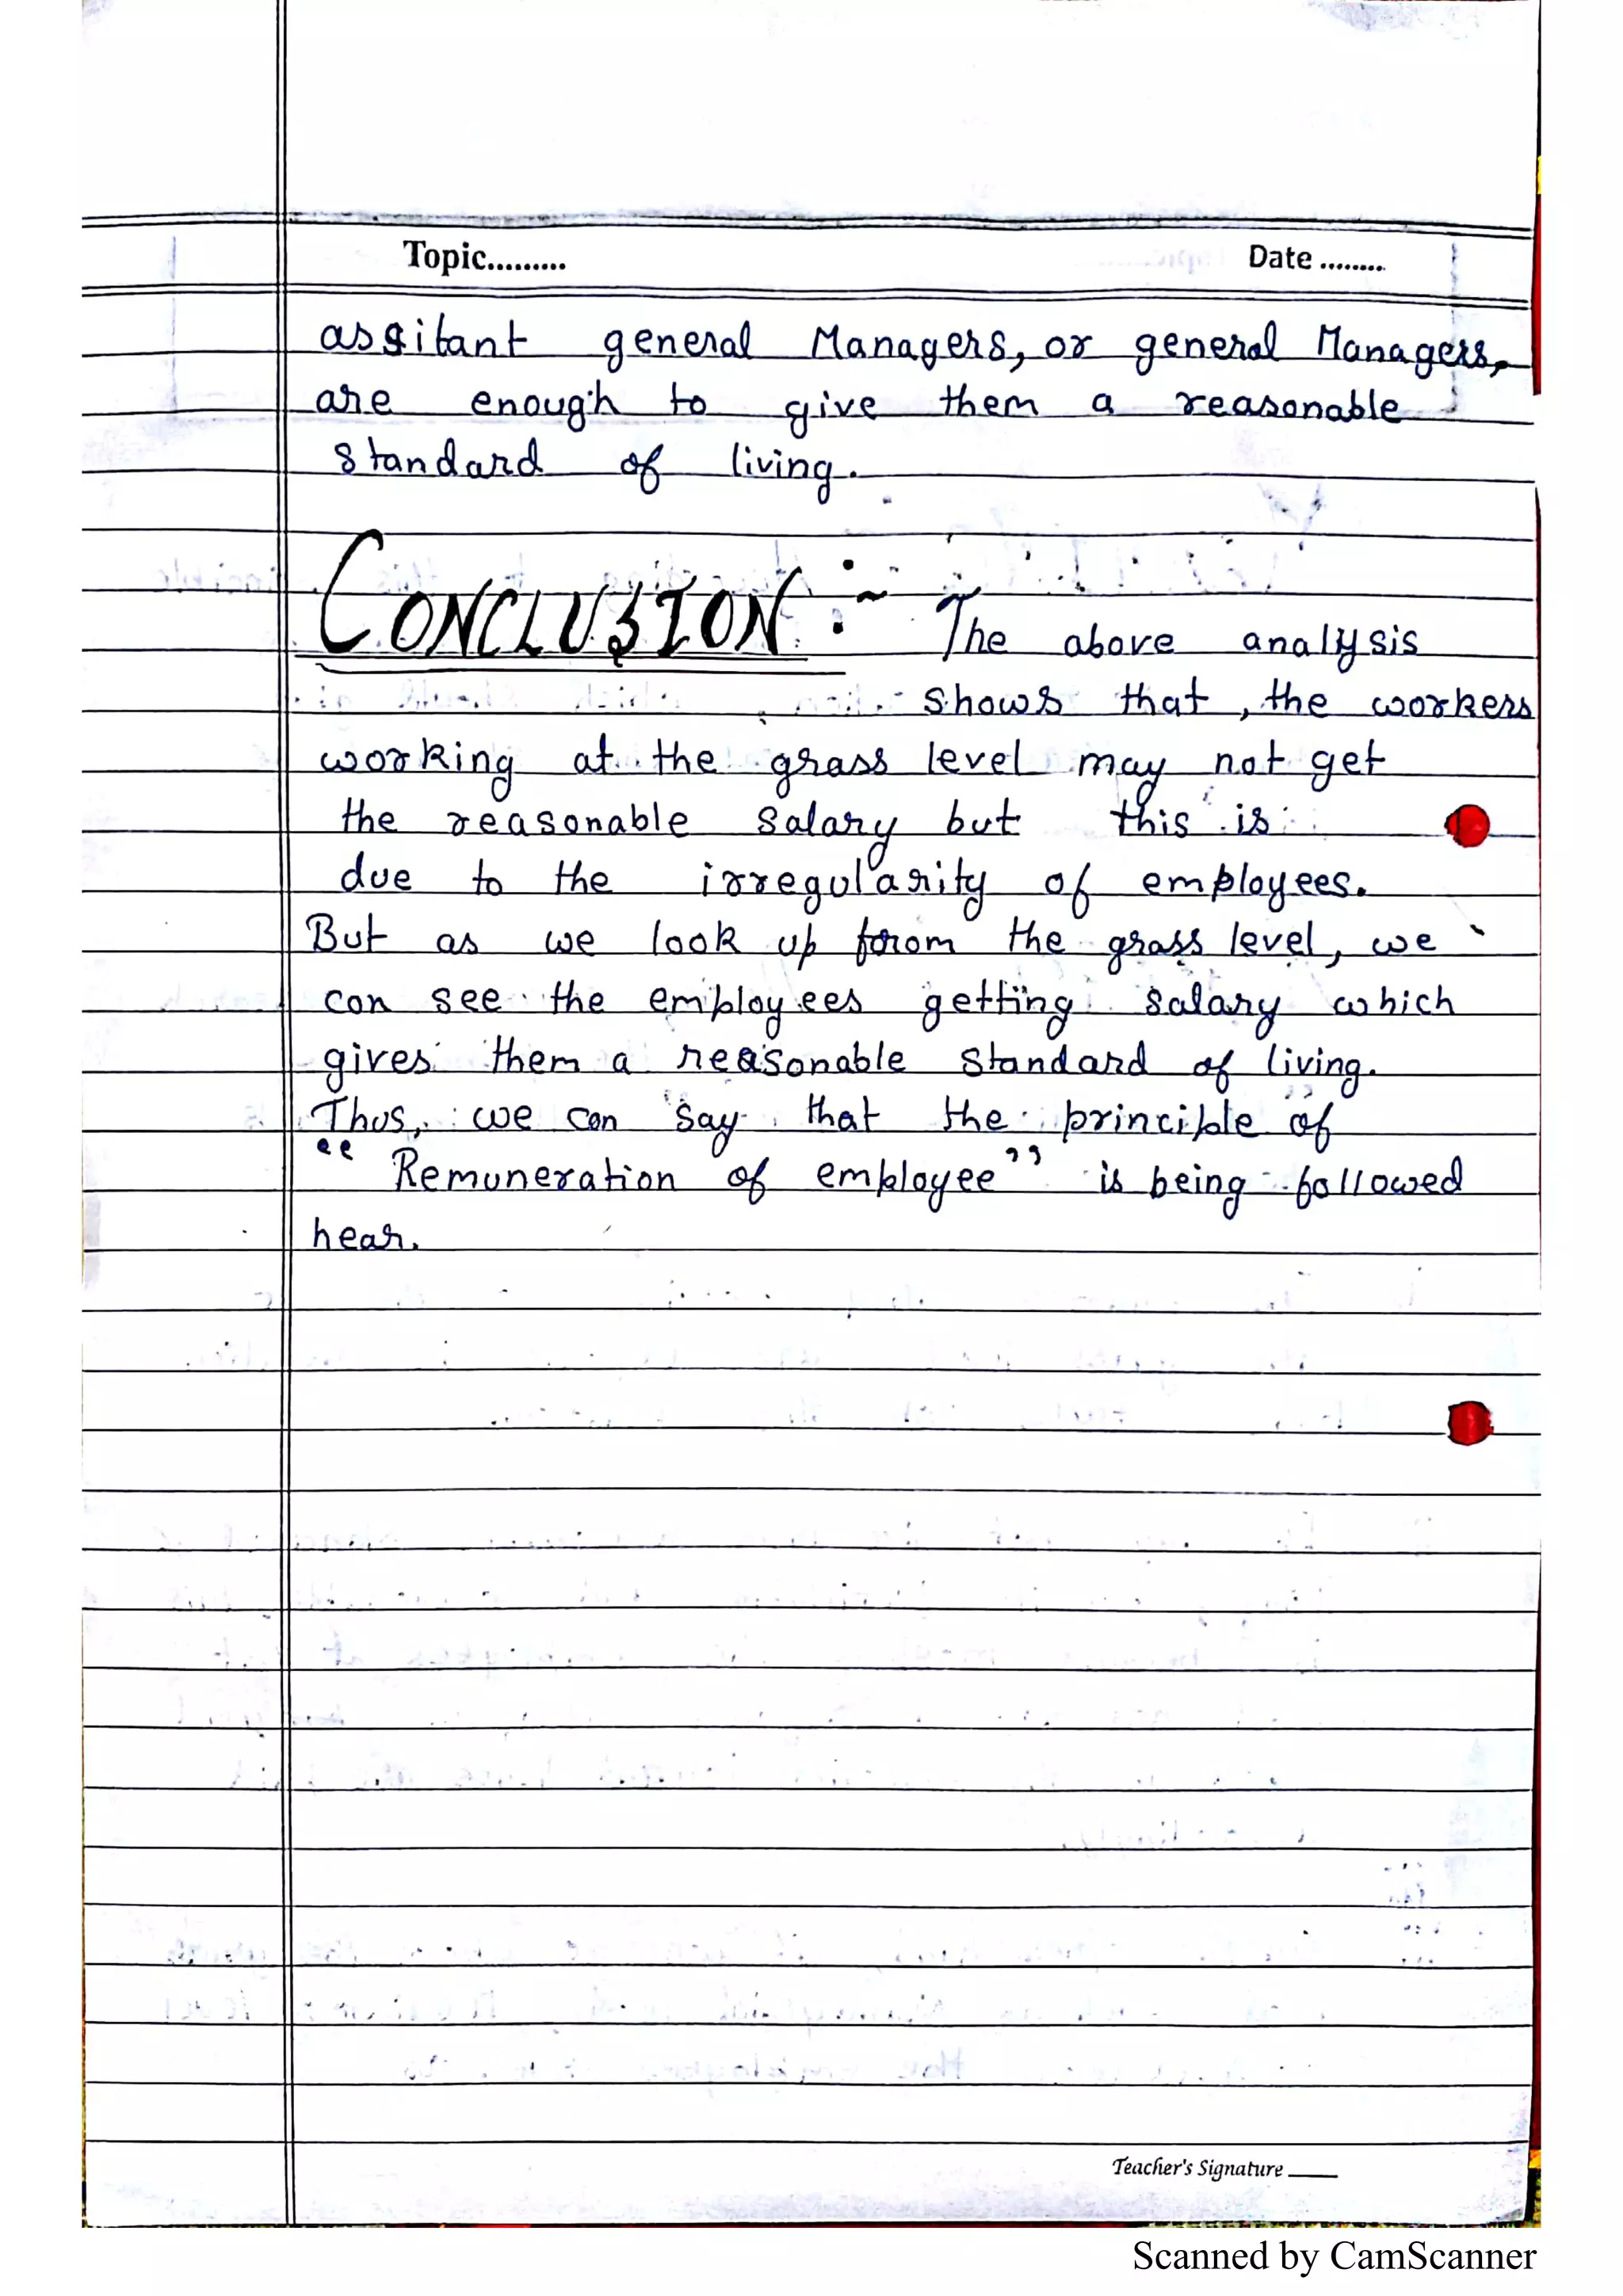 Topic......... Date ........
assitant general Managers, or general Managers,
are enough to give them a reasonable
standard of living.
CONCLUSION :- The above analysis
shows that, the workers
working at the grass level may not get
the reasonable salary but this is
due to the irregularity of employees.
But as we look up from the grass level, we
can see the employees getting salary which
gives them a reasonable standard of living.
Thus, we can say that the principle of
"Remuneration of employee" is being followed
hear.
Teacher's Signature ____
Scanned by CamScanner